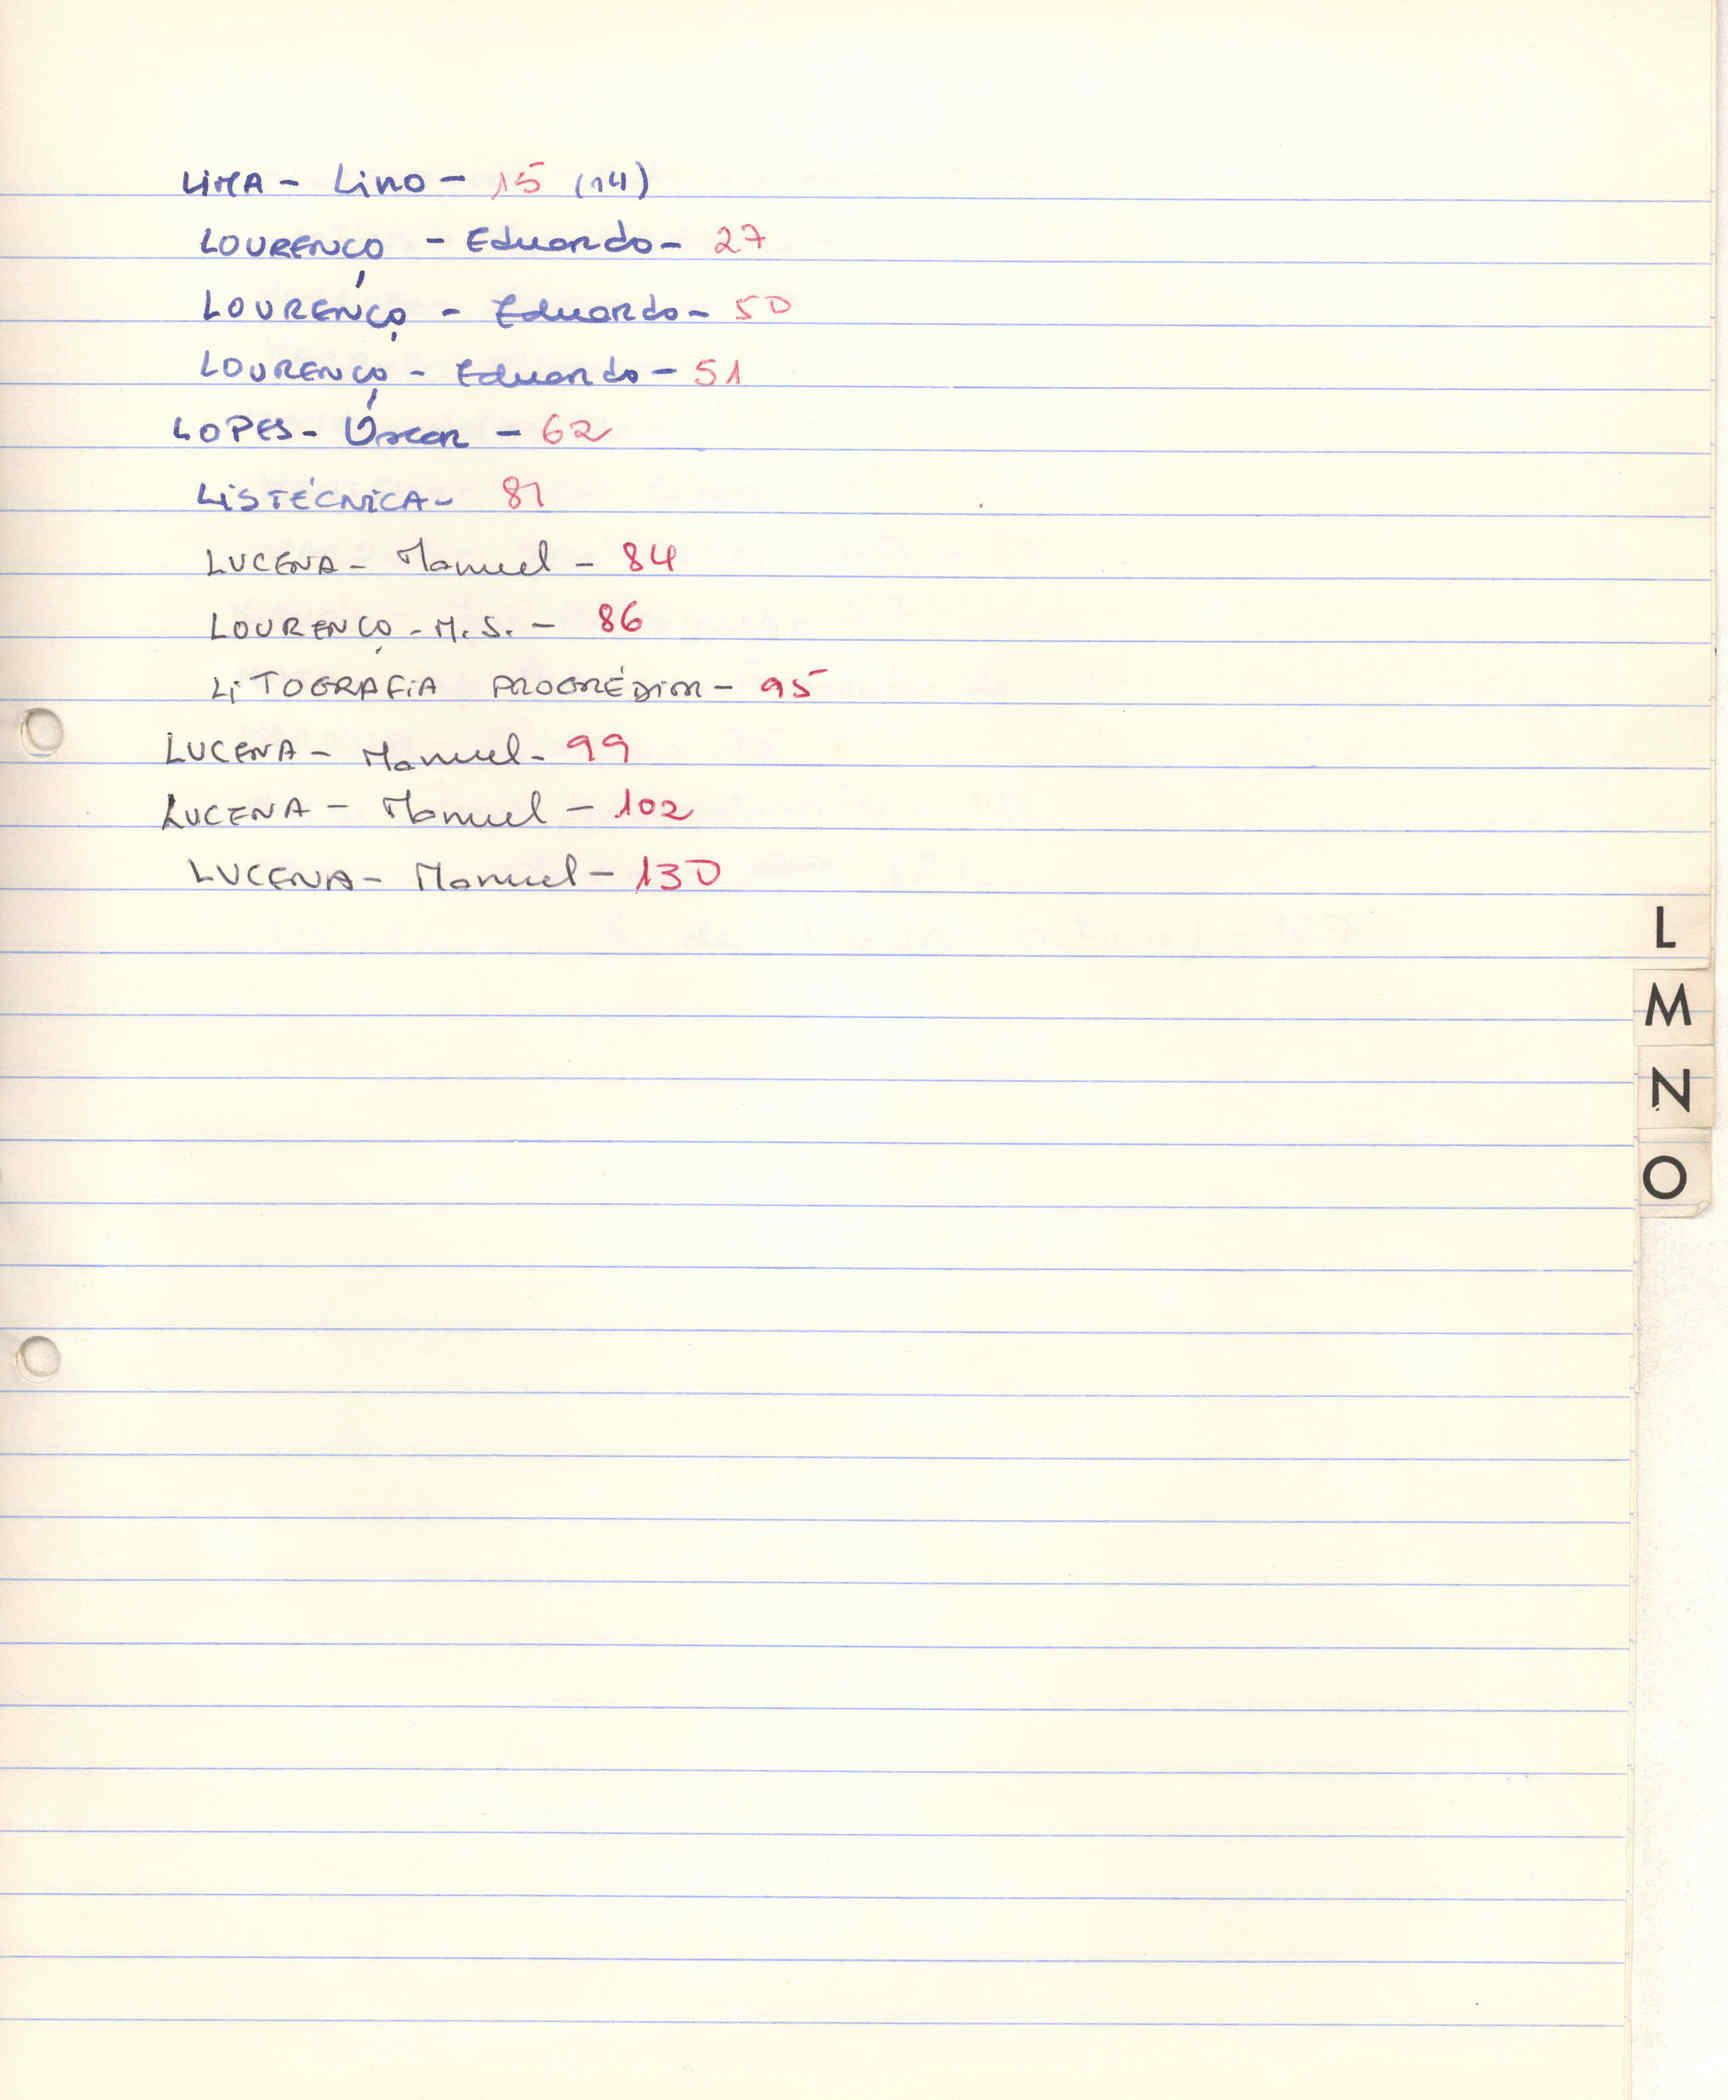 LIMA - Lino - 15 (14)
LOURENÇO - Eduardo - 27
LOURENÇO - Eduardo - 50
LOURENÇO - Eduardo - 51
LOPES - Óscar - 62
LISTÉCNICA - 81
LUCENA - Manuel - 84
LOURENÇO - M. S. - 86
LITOGRAFIA PROGRÉDIOR - 95
LUCENA - Manuel - 99
LUCENA - Manuel - 102
LUCENA - Manuel - 130
L
M
N
O